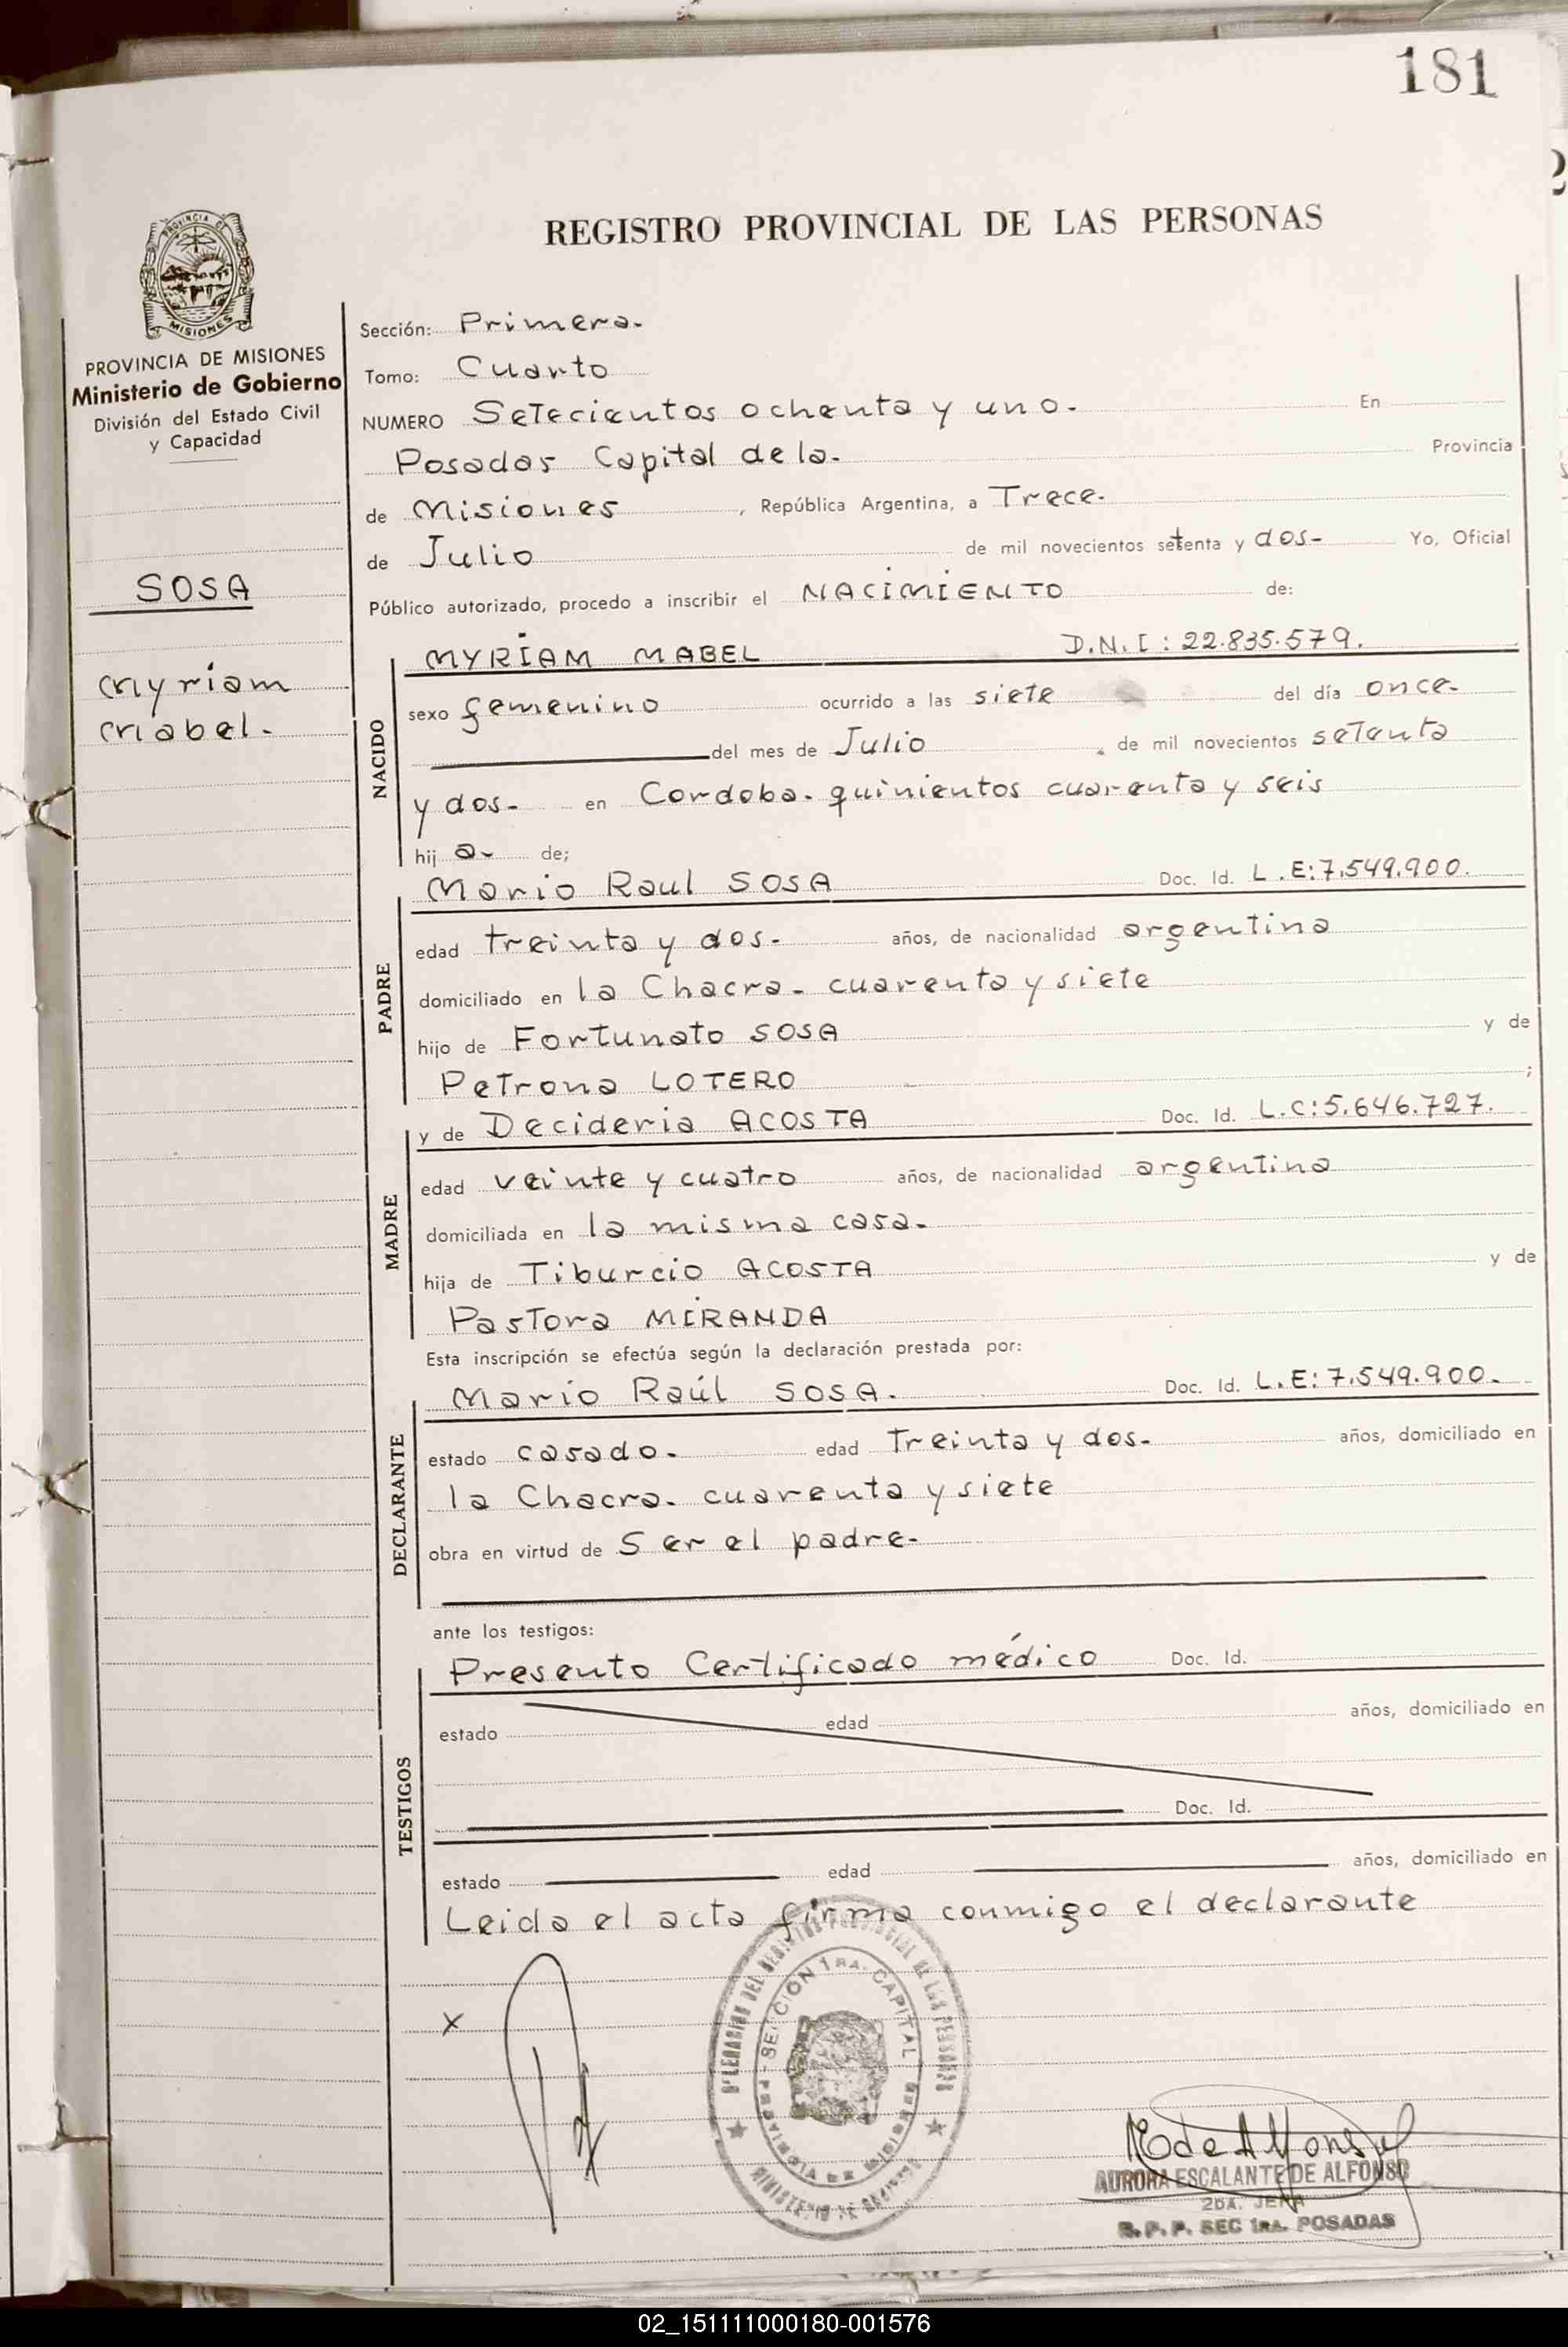 181
REGISTRO PROVINCIAL DE LAS PERSONAS
PROVINCIA DE MISIONES
Ministerio de Gobierno
División del Estado Civil
y Capacidad
SOSA
Myriam
Mabel.
Sección: Primera.
Tomo: Cuarto
NUMERO Setecientos ochenta y uno. En
Posadas Capital de la. Provincia
de Misiones, República Argentina, a Trece.
de Julio de mil novecientos setenta y dos- Yo, Oficial
Público autorizado, procedo a inscribir el NACIMIENTO de:
NACIDO
MYRIAM MABEL D.N.I: 22.835.579.
sexo femenino ocurrido a las siete del día once.
del mes de Julio de mil novecientos setenta
y dos- en Cordoba. quinientos cuarenta y seis
hij a. de;
PADRE
Mario Raul SOSA Doc. Id. L.E:7.549.900.
edad treinta y dos. años, de nacionalidad argentina
domiciliado en la Chacra. cuarenta y siete
hijo de Fortunato SOSA y de
Petrona LOTERO ;
MADRE
y de Decideria ACOSTA Doc. Id. L.C:5.646.727.
edad veinte y cuatro años, de nacionalidad argentina
domiciliada en la misma casa.
hija de Tiburcio ACOSTA y de
Pastora MIRANDA
Esta inscripción se efectúa según la declaración prestada por:
DECLARANTE
Mario Raúl SOSA. Doc. Id. L.E:7.549.900.
estado casado. edad Treinta y dos. años, domiciliado en
la Chacra. cuarenta y siete
obra en virtud de Ser el padre.
ante los testigos:
TESTIGOS
Presento Certificado médico Doc. Id.
estado edad años, domiciliado en
Doc. Id.
estado edad años, domiciliado en
Leida el acta firma conmigo el declarante
X
SECCION 1RA. CAPITAL
PROVINCIA DE MISIONES
MINISTERIO DE GOBIERNO
AURORA ESCALANTE DE ALFONSO
2DA. JEFA
R.P.P. SEC 1RA. POSADAS
02_151111000180-001576